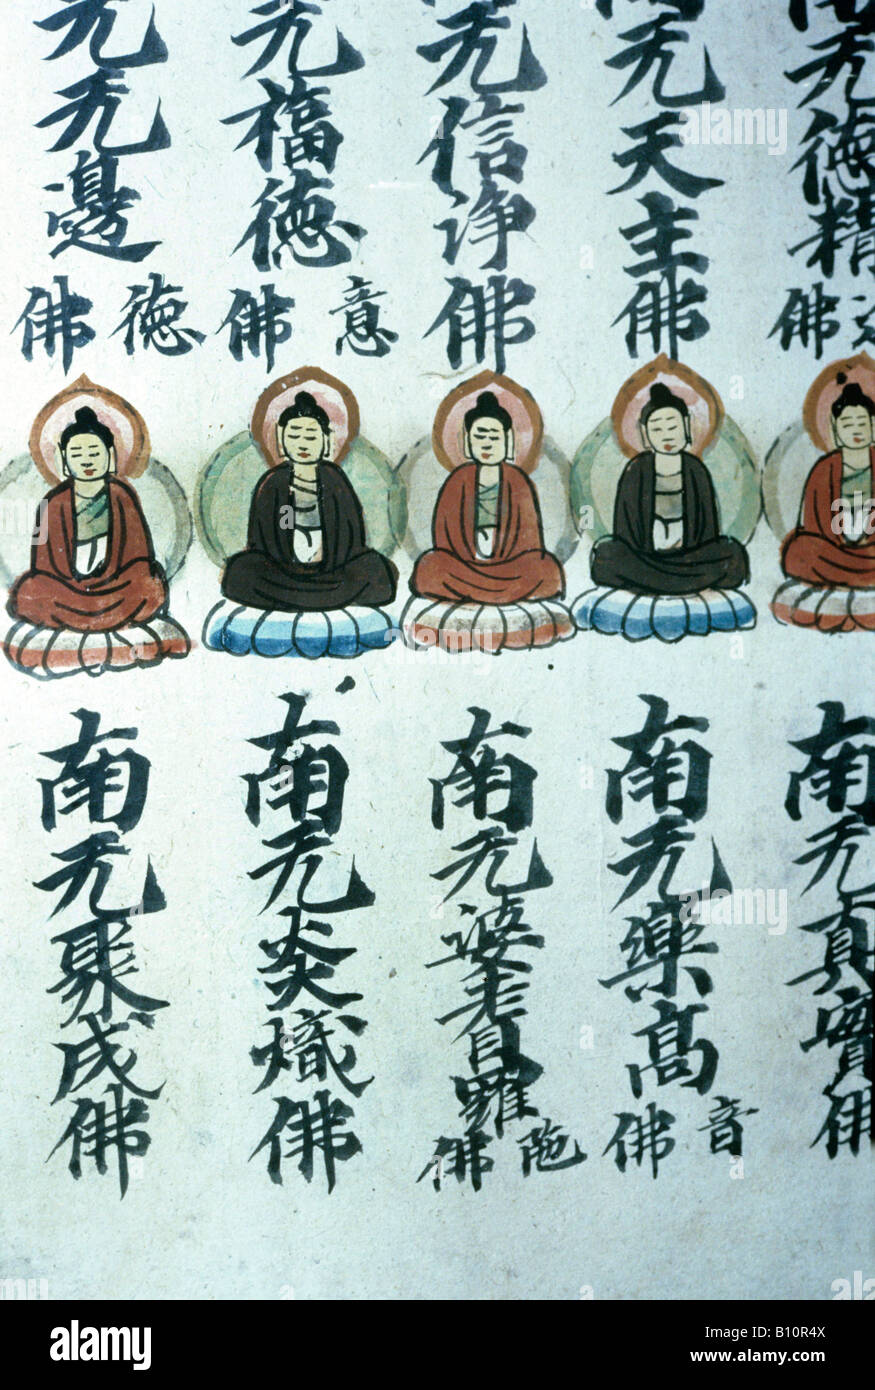 无德精佛
无天主佛
无信净佛
无福德意佛
无无邊德佛
南无真實佛
南无樂髙音佛
南无婆耆羅陁佛
南无炎熾佛
南无聚成佛
alamy
Image ID: B10R4X
www.alamy.com